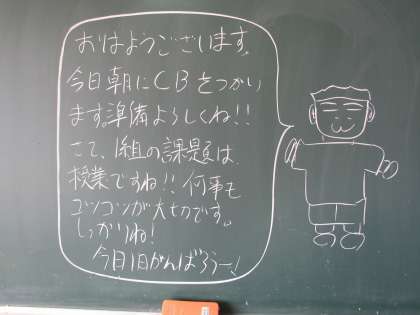 おはようございます。
今日朝にCBをつかい
ます。準備よろしくね!!
さて、1組の課題は、
授業ですね!! 何事も
コツコツが大切です。
しっかりね!
今日1日がんばろうー!